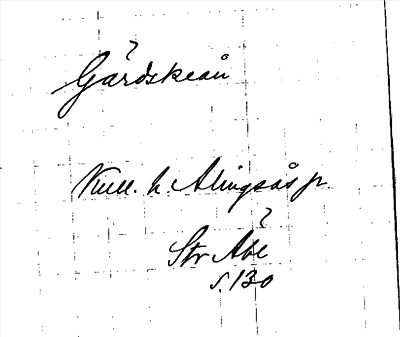 ?
Gårdskeån
Kull. h. Alingsås p.
?
Str Åbc
s. 130